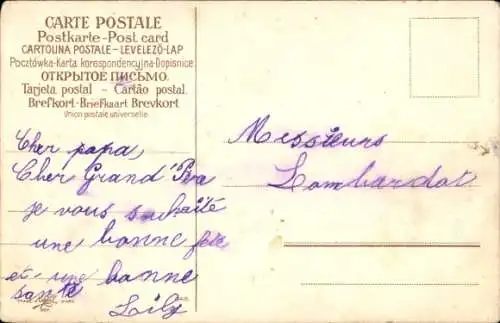 CARTE POSTALE
Postkarte-Post card
CARTOLINA POSTALE-LEVELEZÖ-LAP
Pocztówka-Karta korespondencyjna-Dopisnice
ОТКРЫТОЕ ПИСЬМО.
Tarjeta postal - Cartão postal.
Brefkort-Briefkaart Brevkort
Union postale universelle
Cher papa,
Cher Grand Papa
je vous souhaite
une bonne fête
et une bonne
santé
Lily
Messieurs
Lombardot